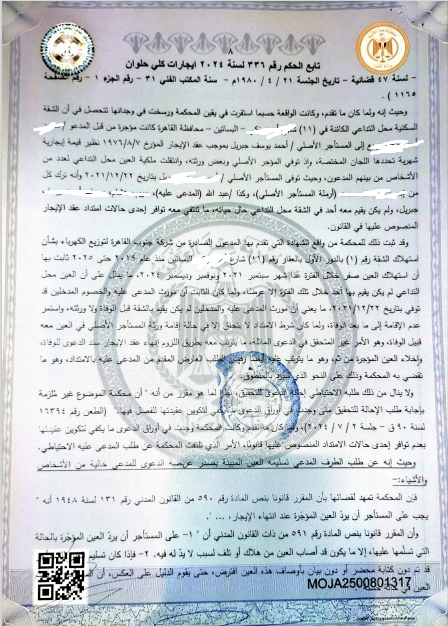 ٨
تابع الحكم رقم ٣٣٦ لسنة ٢٠٢٤ ايجارات كلي حلوان
– لسنة ٤٧ قضائية – تاريخ الجلسة ٢١ / ٤ / ١٩٨٠م – سنة المكتب الفني ٣١ – رقم الجزء ١ – رقم الصفحة
١١٦٥ ) .
وحيث إنه ولما كان ما تقدم، وكانت الواقعة حسبما استقرت في يقين المحكمة ورسخت في وجدانها تتحصل في أن الشقة
السكنية محل التداعي الكائنة في (١١) البساتين – محافظة القاهرة كانت مؤجرة من قبل المدعو /
إلى المستأجر الأصلي / أحمد يوسف جبريل بموجب عقد الإيجار المؤرخ ١٩٧٦/٨/٧ نظير قيمة إيجارية
شهرية تحددها اللجان المختصة، وإذ توفي المؤجر الأصلي وبعض ورثته، وانتقلت ملكية العين محل التداعي لعدد من
الأشخاص من بينهم المدعون، وحيث توفى المستأجر الأصلي / بتاريخ ٢٠٢١/١٢/٢٢ وأنه ترك كل
من (أرملة المستأجر الأصلي)، وكذا /عبد الله (المدعى عليه)،
جبريل، ولم يكن يقيم معه أحد في الشقة محل التداعي حال حياته، ما تنتفي معه توافر إحدى حالات امتداد عقد الإيجار
المنصوص عليها في القانون.
وقد ثبت ذلك للمحكمة من واقع الشهادة التي تقدم بها المدعون الصادرة من شركة جنوب القاهرة لتوزيع الكهرباء بشأن
استهلاك الشقة رقم (١) بالدور الأول بالعقار رقم (١١) شارع البساتين منذ عام ٢٠١٩ حتى ٢٠٢٥ ثابت بها
أن استهلاك العين صفر خلال الفترة عدا شهر سبتمبر ٢٠٢١ ونوفمبر وديسمبر ٢٠٢٤، ما يدلل على أن العين محل
التداعي لم يكن يقيم بها أحد خلال تلك الفترة إلا عرضا، ولما كان الثابت أن مورث المدعى عليه والخصوم المدخلين قد
توفي بتاريخ ٢٠٢١/١٢/٢٢، ما يعني أن مورث المدعى عليه والمدخلين لم يكن يقيم بالشقة قبل الوفاة ولا ورثته، واستمر
عدم الإقامة إلى ما بعد الوفاة، ولما كان شرط الامتداد لا يتحقق إلا في حالة إقامة ورثة المستأجر الأصلي في العين معه
قبيل الوفاة، وهو الأمر غير المتحقق في الدعوى الماثلة، ما يترتب معه بطريق اللزوم إنهاء عقد الإيجار سند الدعوى للوفاة،
وإخلاء العين المؤجرة من ثم، وهو ما يترتب عليه أيضا رفض الطلب العارض المقدم من المدعى عليه بالامتداد، وهو ما
تقضي به المحكمة وذلك على النحو الذي سيرد بالمنطوق.
ولا ينال من ذلك طلبه الاحتياطي إحالة الدعوى للتحقيق، لما هو مقرر من أنه " أن محكمة الموضوع غير مُلزمة
بإجابة طلب الإحالة للتحقيق متى وجدت في أوراق الدعوى ما يكفي لتكوين عقيدتها للفصل فيها" ( الطعن رقم ١٦٣٩٤
لسنة ٩٠ ق – جلسة ٢ / ٧ / ٢٠٢٤)، ولما كان ما تقدم وكانت المحكمة وجدت في أوراق الدعوى ما يكفي لتكوين عقيدتها
بعدم توافر إحدى حالات الامتداد المنصوص عليها قانونًا، الأمر الذي تلتفت المحكمة عن طلب المدعى عليه الاحتياطي.
وحيث إنه عن طلب الطرف المدعي تسليمه العين المبينة بصدر عريضة الدعوى للمدعي خالية من الأشخاص
والأشياء:-
فإن المحكمة تمهد لقضائها بأن المقرر قانونا بنص المادة رقم ٥٩٠ من القانون المدني رقم ١٣١ لسنة ١٩٤٨ أنه "
يجب على المستأجر أن يردّ العين المؤجرة عند انتهاء الإيجار، ... ".
وأن المقرر قانونا بنص المادة رقم ٥٩١ من ذات القانون المدني أن "١- على المستأجر أن يردّ العين المؤجرة بالحالة
التي تسلّمها عليها، إلا ما يكون قد أصاب العين من هلاك أو تلف لسبب لا يدّ له فيه. ٢- فإذا كان تسليم
قد تم دون كتابة محضر أو دون بيان بأوصاف هذه العين افترض، حتى يقوم الدليل على العكس، أن
العين في حالة حسنة
MOJA2500801317